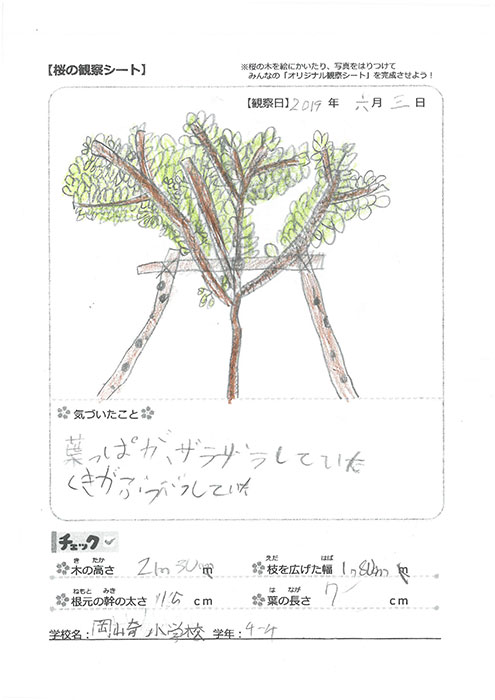 【桜の観察シート】
※桜の木を絵にかいたり、写真をはりつけて
みんなの「オリジナル観察シート」を完成させよう！
【観察日】2019 年 六 月 三 日
気づいたこと
葉っぱが、ザラザラしていた
くきがぶつぶつしていた
チェック
木の高さ 2m30cm m
きたか
枝を広げた幅 1m80cm m
えだ はば
根元の幹の太さ cm
ねもと みき
葉の長さ 7 cm
は なが
学校名：岡崎小学校 学年：4-4